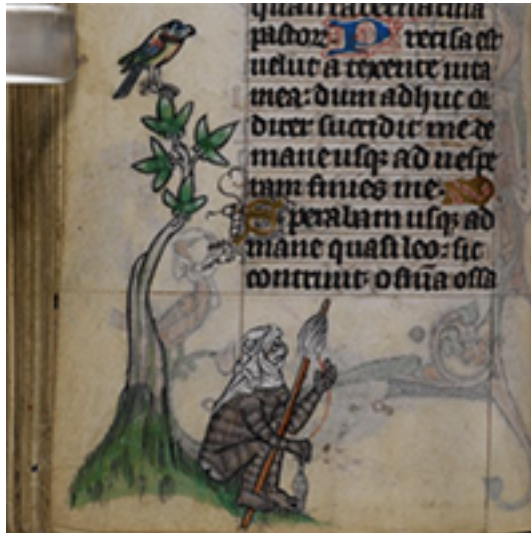 quasi tabernacula
pastoꝝ Precisa est
uelut a texente uita
mea: dum adhuc or
direr succidit me de
mane usqꝫ ad uespe
ram finies me·
Sperabam usqꝫ ad
mane quasi leo: sic
contriuit omīa ossa